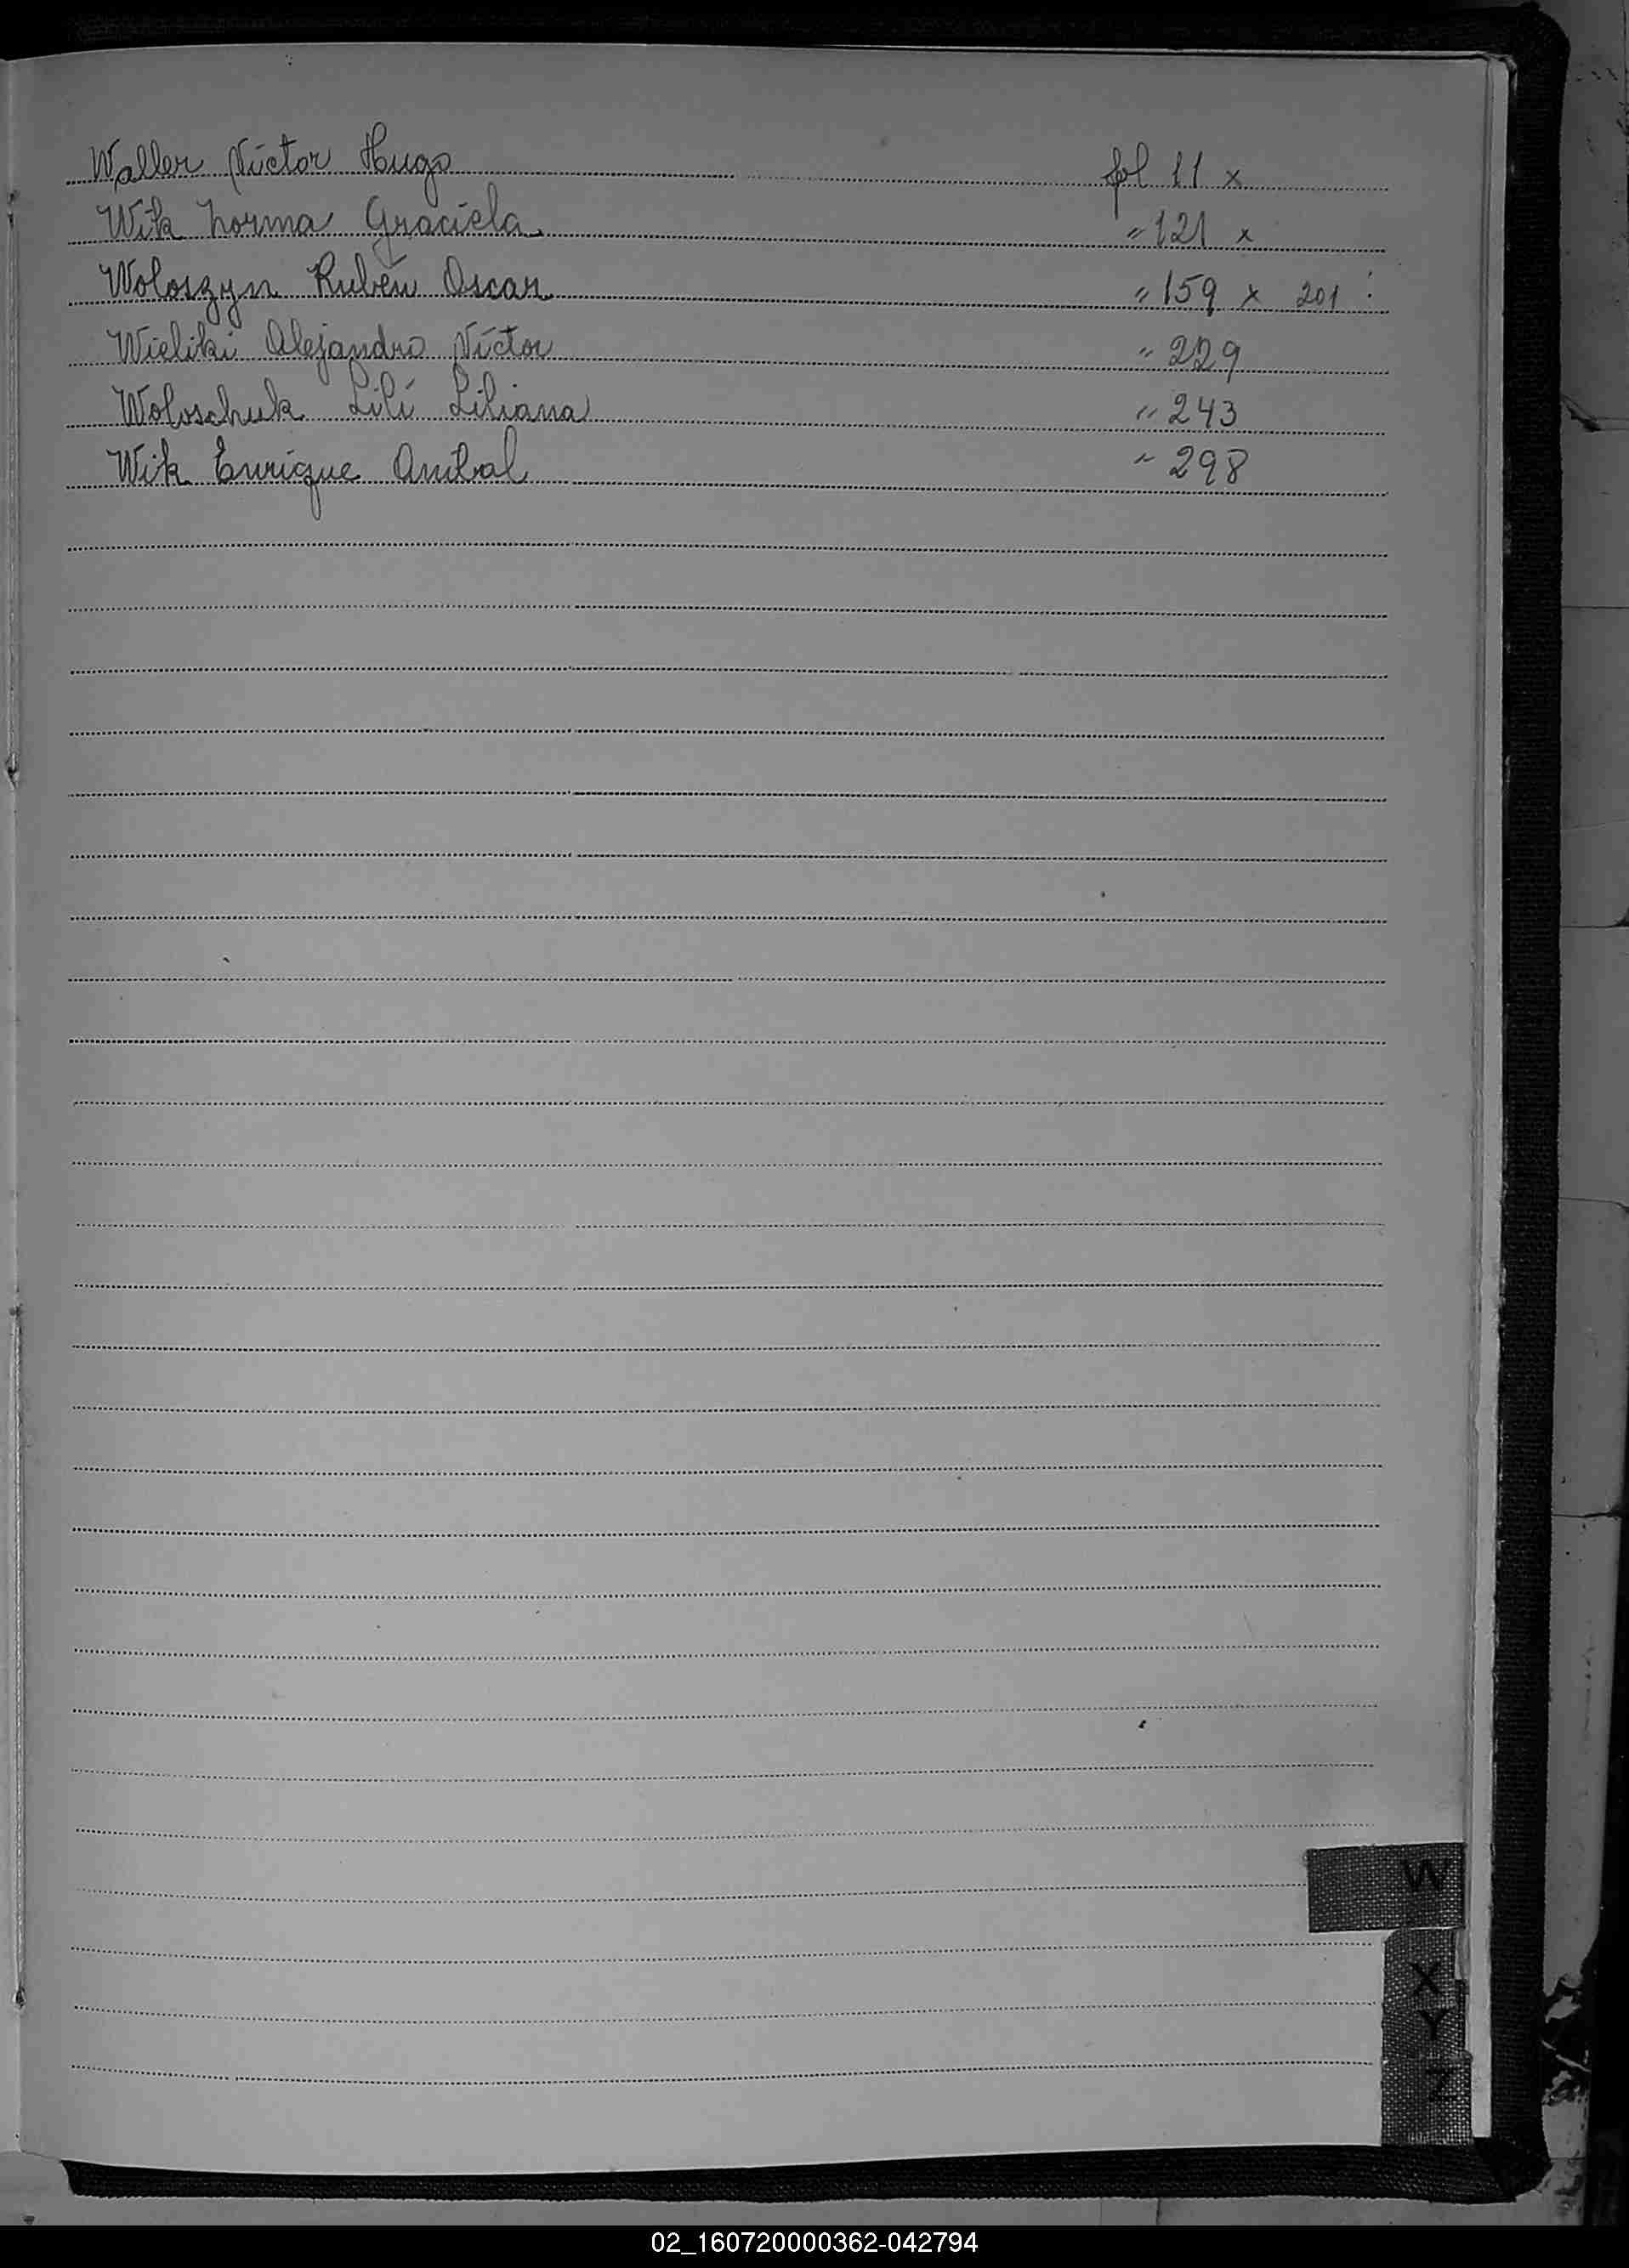 Waller Víctor Hugo fol 11 x
Wik Norma Graciela " 121 x
Woloszyn Rubén Oscar " 159 x 201 :
Wieliki Alejandro Víctor " 229
Woloschuk Lilí Liliana " 243
Wik Enrique Anibal " 298
W
X
Y
Z
02_160720000362-042794